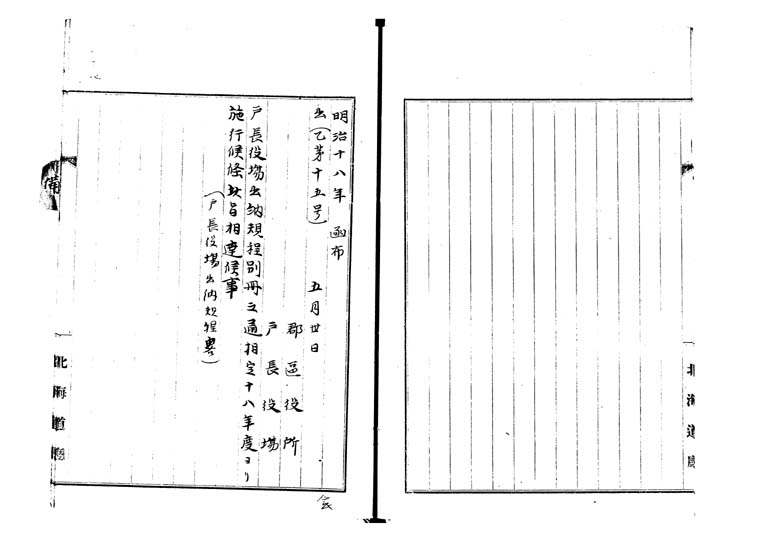 明治十八年 函布
出(乙第十五号) 五月廿日
郡區役所
戸長役場
戸長役場出納規程別冊之通相定十八年度ヨリ
施行候條此旨相達候事
(戸長役場出納規程畧)
北海道廳
備
北海道廳